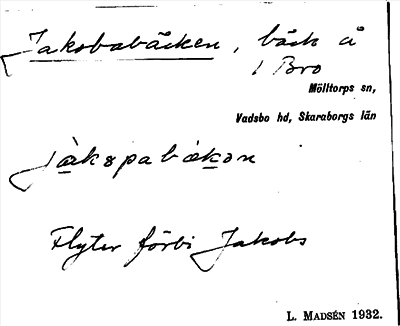 Jakobabäcken, bäck å
1 Bro
Mölltorps sn,
Vadsbo hd, Skaraborgs län
jàkspabækən
Flyter förbi Jakobs
L. MADSÉN 1932.